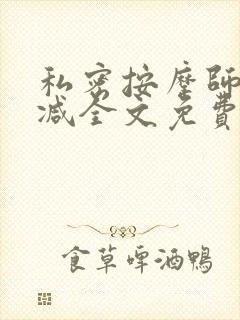 私密按摩師
减全文免費
食草啤酒鴨